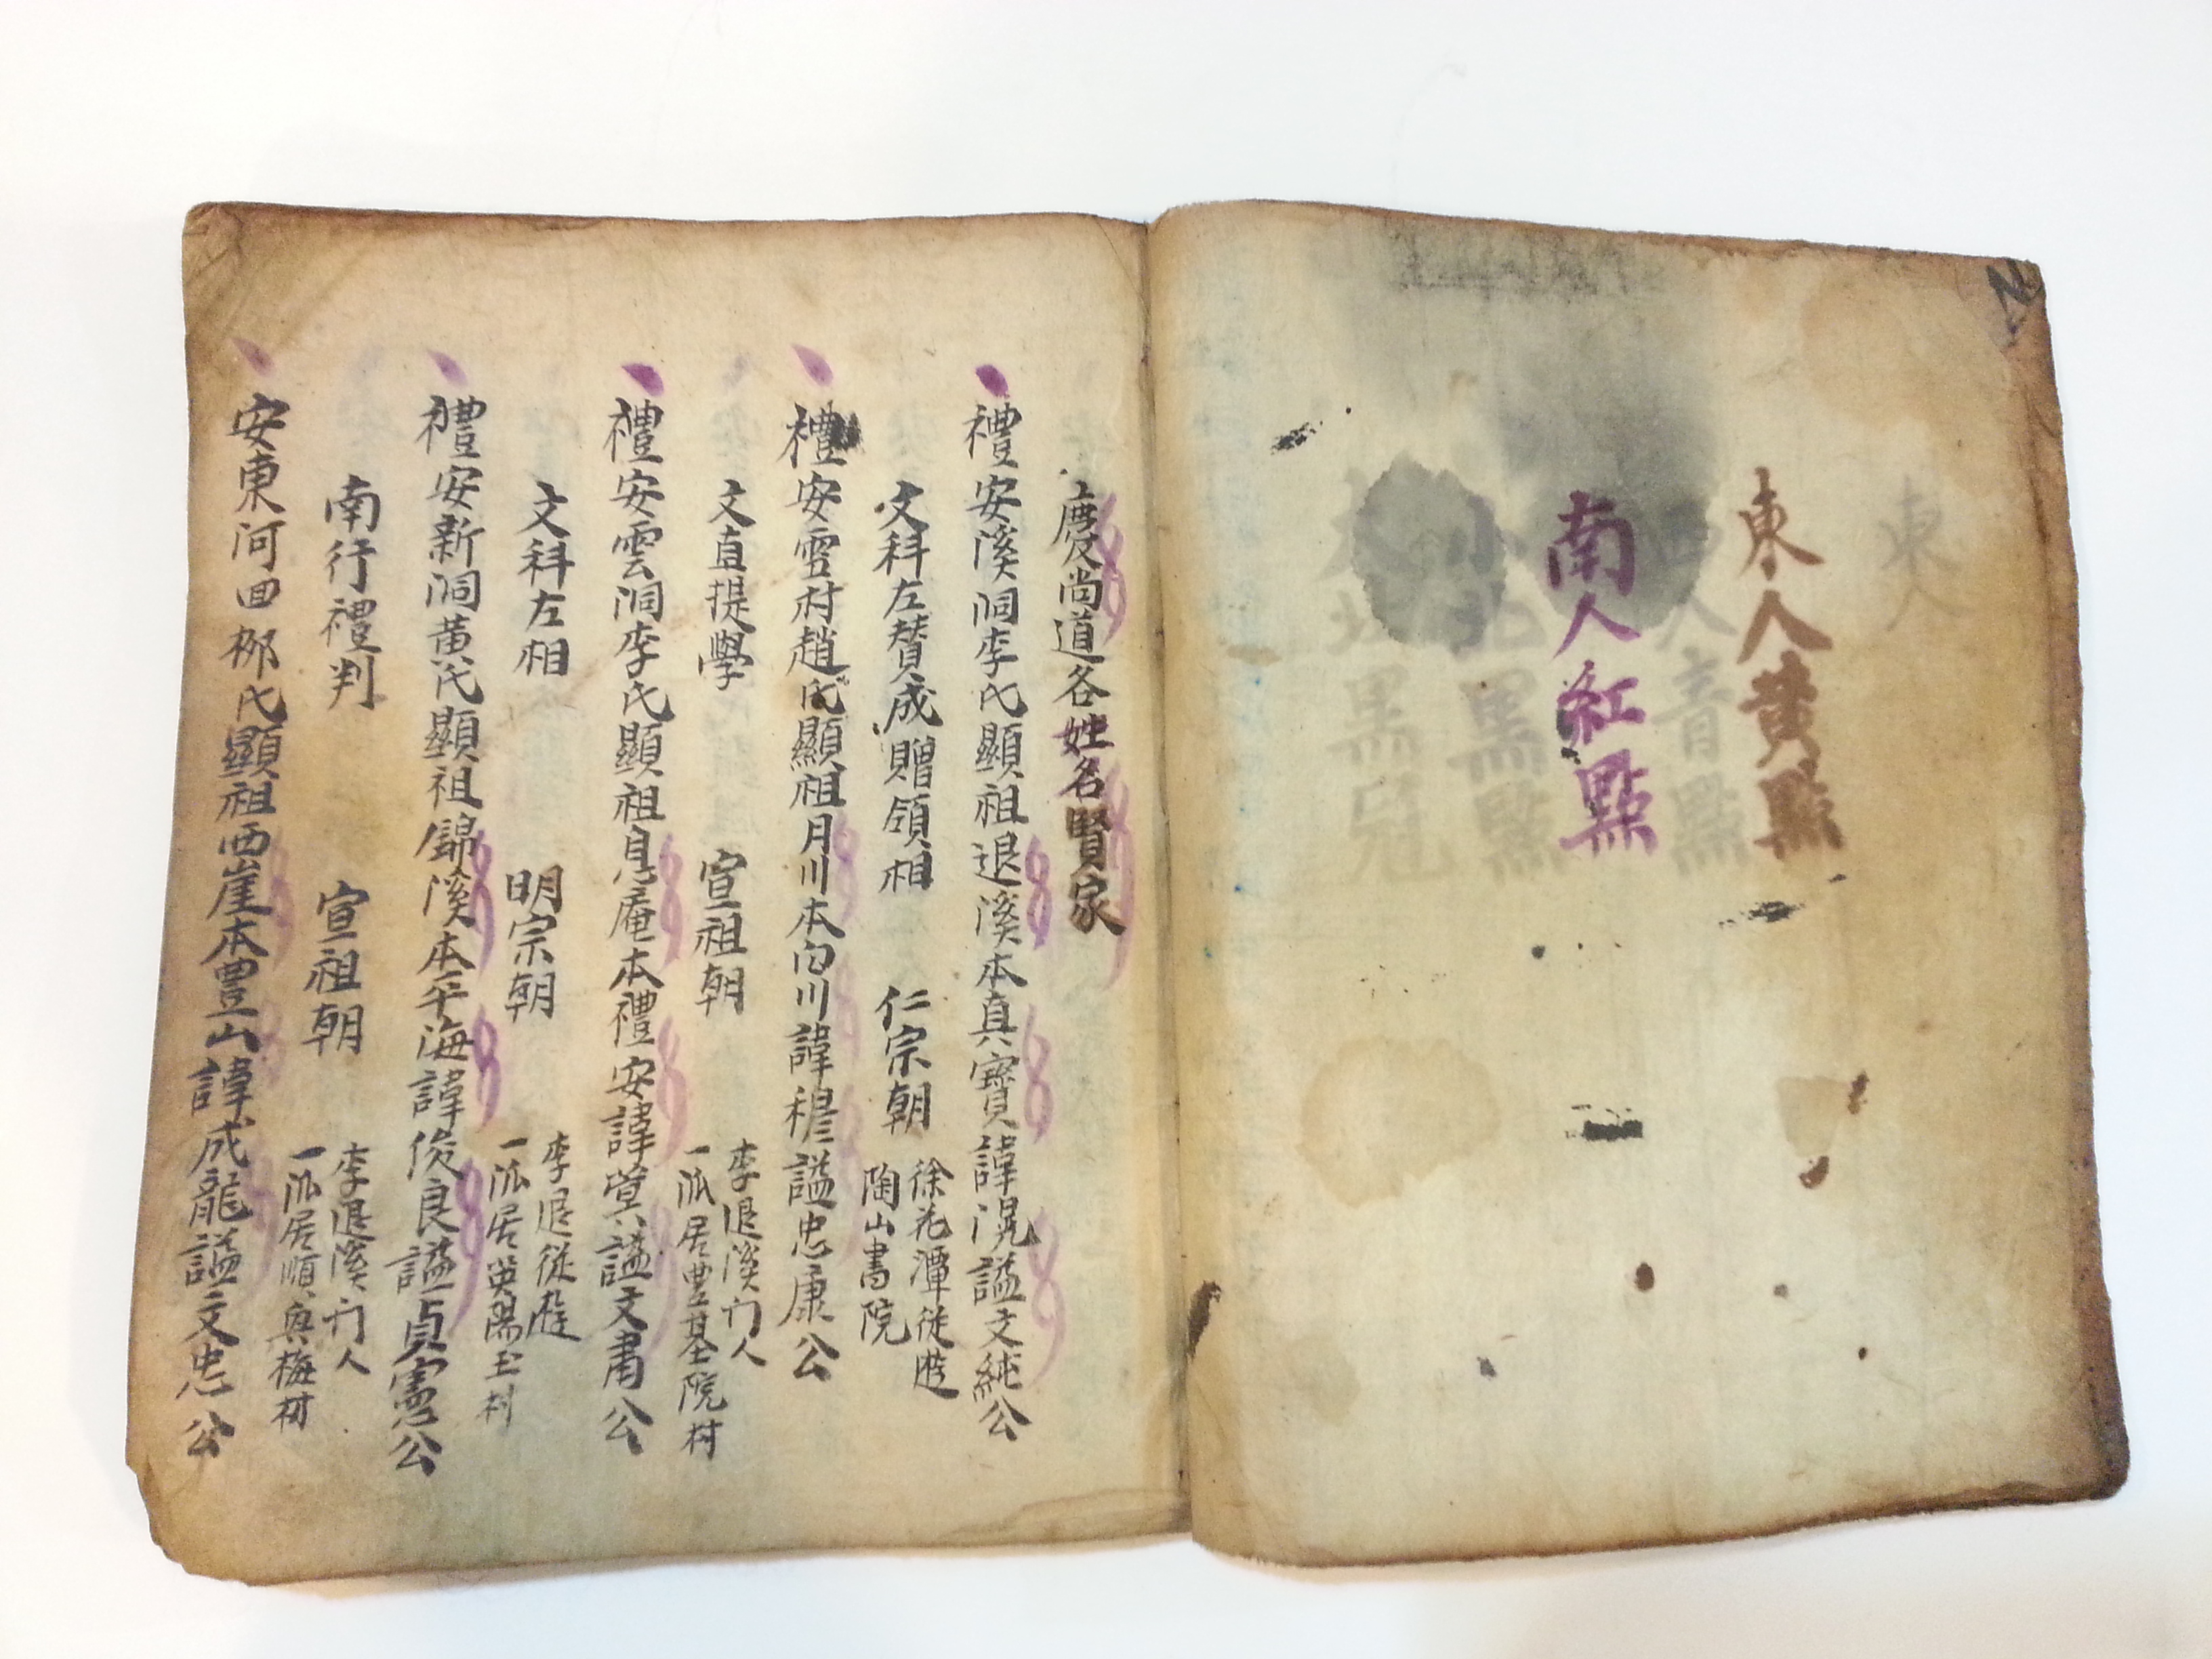 東人
東人黄點
南人紅點
小北黒點
慶尚道各姓名賢家
禮安溪洞李氏顯祖退溪本真寶諱滉謚文純公
文科左賛成贈領相 仁宗朝 徐花潭從遊
陶山書院
禮安雲村趙氏顯祖月川本白川諱穆謚忠康公
文直提學 宣祖朝 李退溪門人
一派居豊基院村
禮安雲洞李氏顯祖息庵本禮安諱蓂謚文肅公
文科左相 明宗朝 李退從遊
一派居英陽玉村
禮安新洞黄氏顯祖錦溪本平海諱俊良謚貞憲公
南行禮判 宣祖朝 李退溪門人
一派居順興梅村
安東河回柳氏顯祖西崖本豊山諱成龍謚文忠公